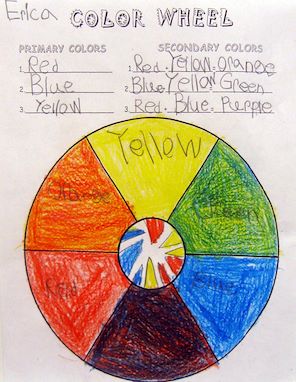 Erica
COLOR WHEEL
PRIMARY COLORS
SECONDARY COLORS
1. Red
1. Red. Yellow. Orange
2. Blue
2. Blue. Yellow. Green
3. Yellow
3. Red. Blue. Purple
Yellow
Orange
Green
Red
Blue